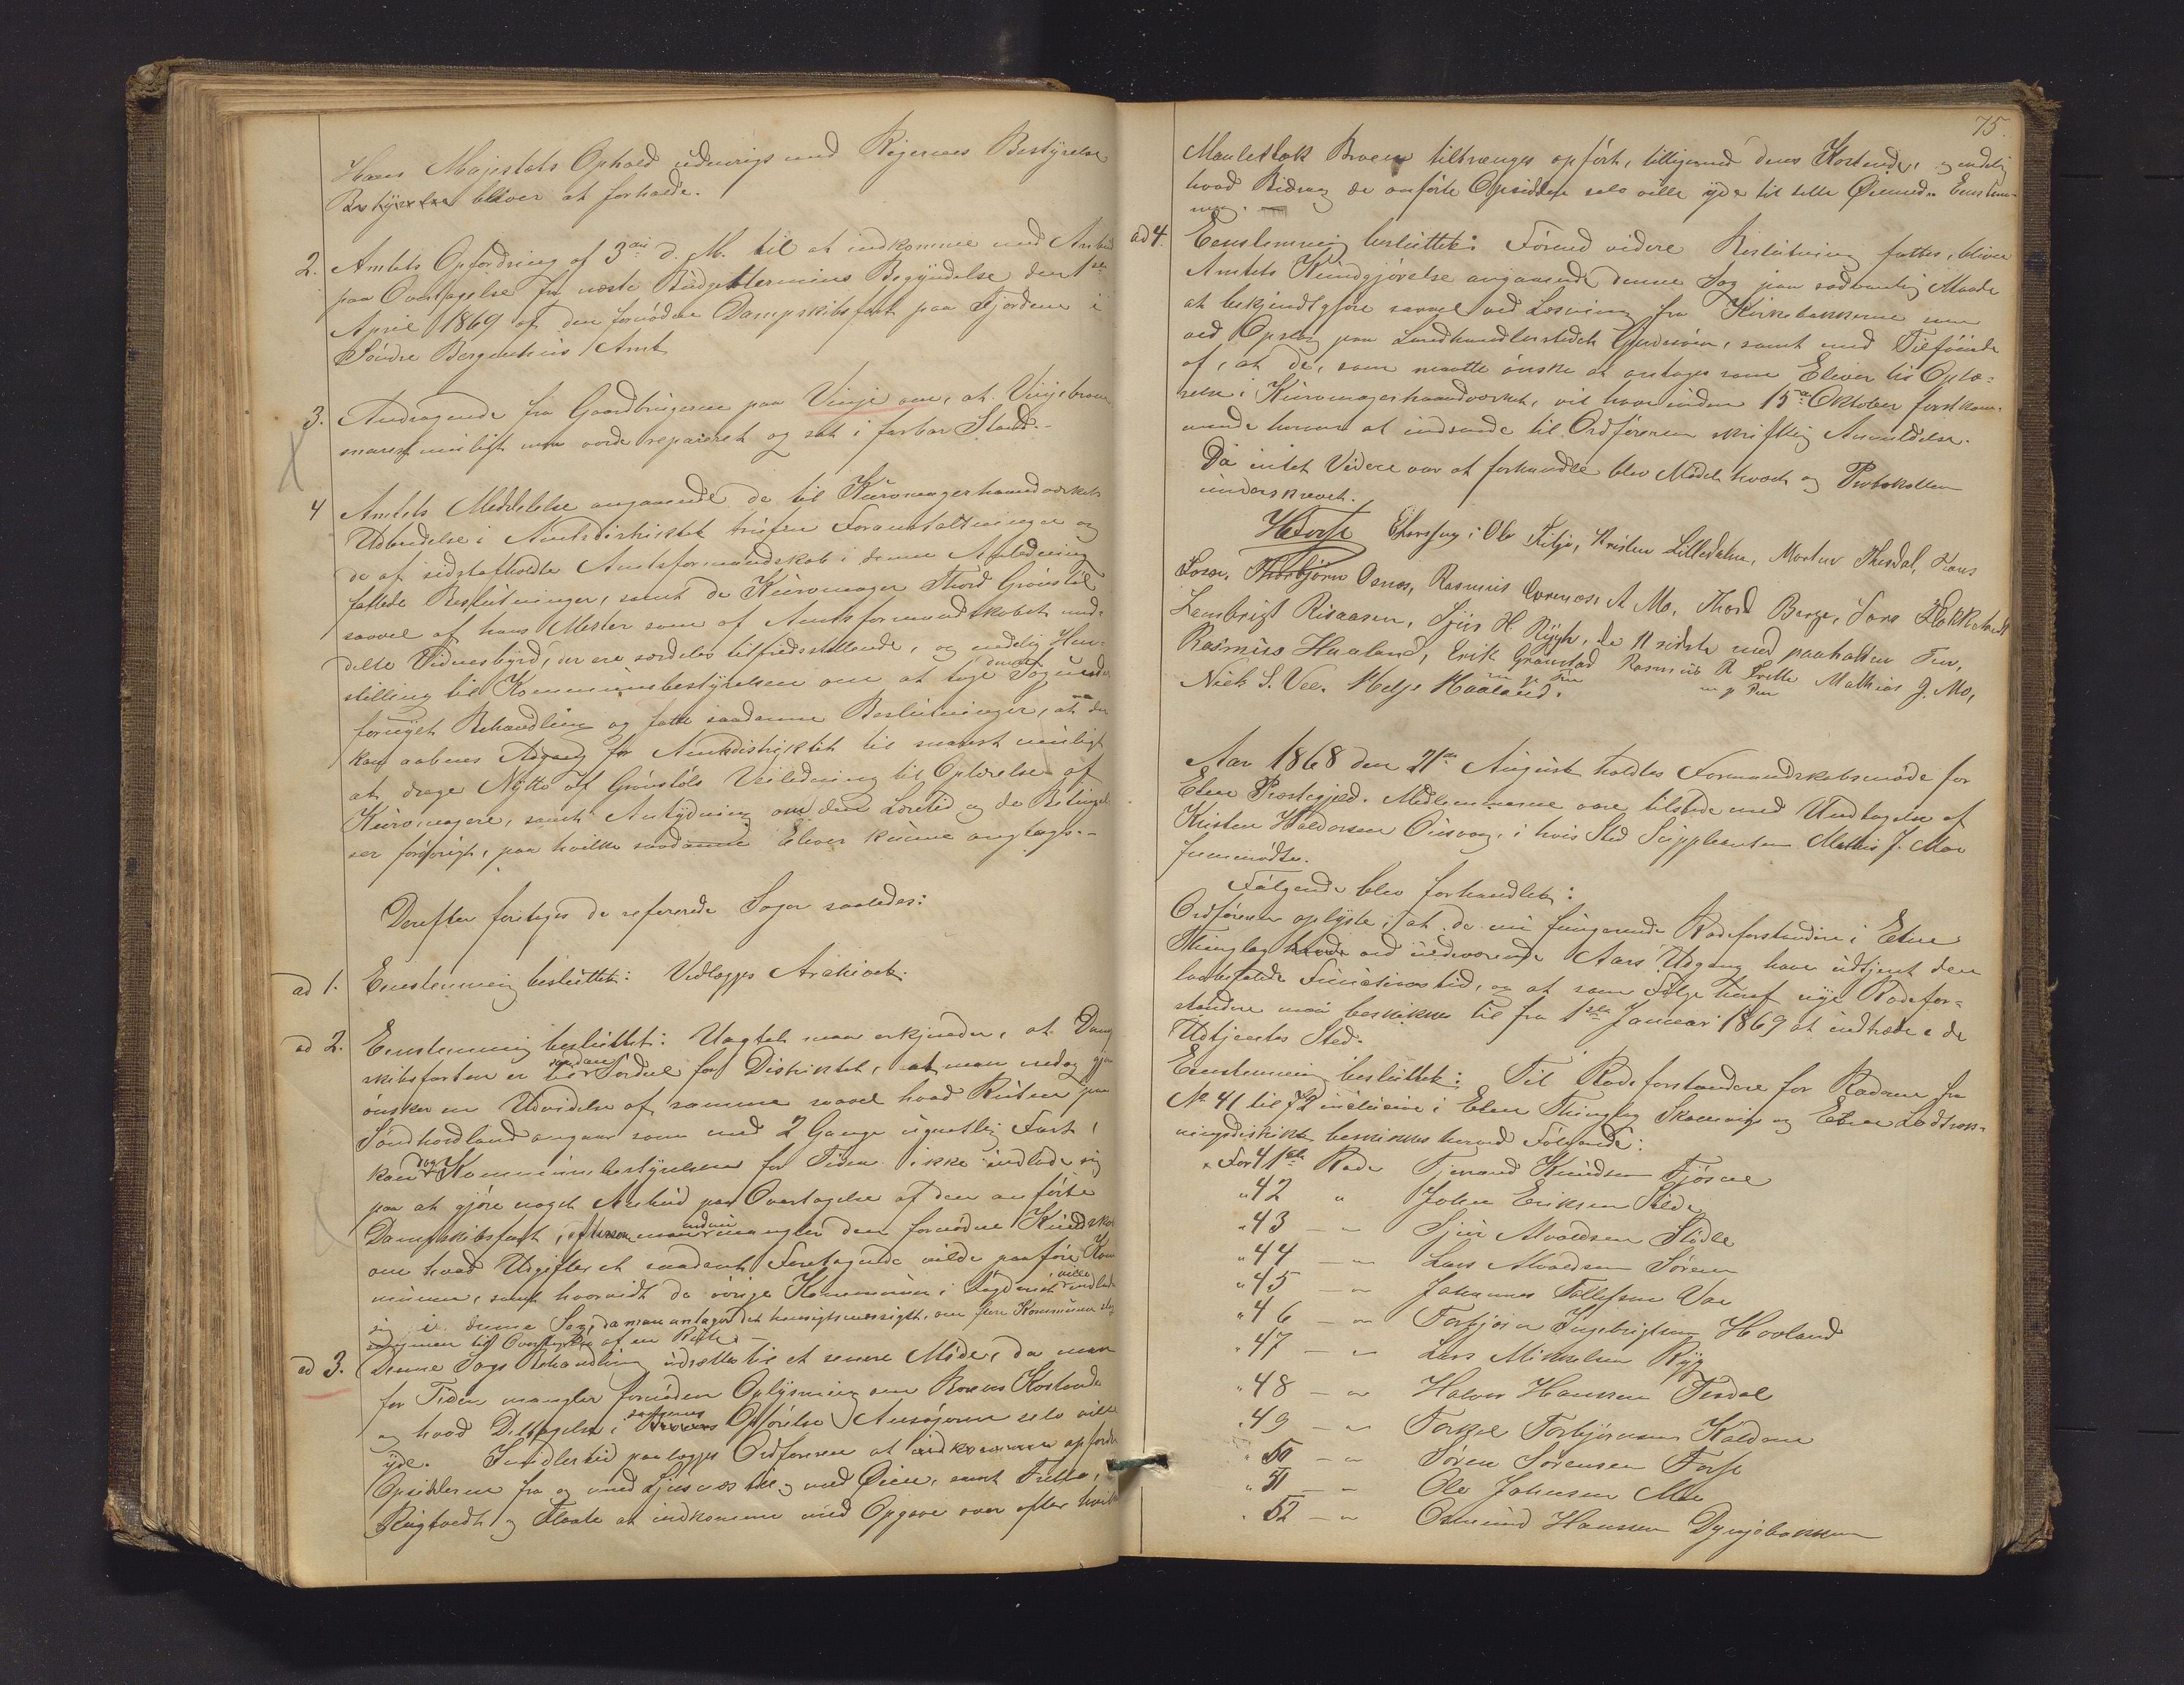 Hans Majestæts Ophold udenrigs med Rigernes Bestyrelse
bliver at forholde.
2. Amtets Opfordring af 3die d. M. til at indkomme med Anbud
paa Overtagelse fra næste Budgettermins Begyndelse den 1ste
April 1869 af den fornødne Dampskibsfart paa Fjordene i
Søndre Bergenhus Amt
3. Andragende fra Gaardbrugerne paa Vinje om, at Vinjebroen
snarest muligt maa vorde repareret og sat i farbar Stand.-
4 Amtets Meddelelse angaaende de til Kurvmagerhaandværkets
Udbredelse i Amtsdistriktet trufne Foranstaltninger og
de af sidstafholdte Amtsformandskab i denne Anledning
fattede Beslutninger, samt de Kurvmager Thord Grønstøl
saavel af hans Mester som af Amtsformandskabet med-
delte Vidnesbyrd, der ere særdeles tilfredsstillende, og endelig Hen-
stilling til Kommunebestyrelsen om at tage denne Sag under
fornyet Behandling og fatte saadanne Beslutninger, at der
kan aabnes Adgang for Amtsdistriktet til snarest muligt
at drage Nytte af Grønstøls Veiledning til Oplærelse af
Kurvmagere, samt Antydning om den Læretid og de Betingel-
ser forøvrigt, paa hvilke saadanne Elever kunne antages.-
Derefter foretoges de refererede Sager saaledes:
ad 1. Eenstemmig besluttet: Vedlægges Archivet.
ad 2. Eenstemmig besluttet: Uagtet man erkjender, at Damp
skibsfarten er til saadan Fordeel for Distriktet, at man endog gjerne
ønsker en Udvidelse af samme saavel hvad Ruten paa
Søndhordland angaar som med 2 Gange ugentlig Fart,
kan dog Kommunebestyrelsen for Tiden ikke indlade sig
paa at gjøre noget Anbud paa Overtagelse af den anførte
Dampskibsfart, eftersom man endnu mangler den fornødne Kundskab
om hvad Udgifter et saadant Foretagende vilde paaføre Kom
munen, samt hvorvidt de øvrige Kommuner i Søndhordland ville indlade
sig i denne Sag, da man antager det hensigtsmæssigt, om flere Kommuner slog
sig sammen til Overtagelse af en Rute.-
ad 3. Denne Sags Behandling udsættes til et senere Møde, da man
for Tiden mangler fornøden Oplysning om Broens Kostende
og hvad Deltagelse i sammes Opførelse Ansøgerne selv ville
yde. Imidlertid paalægges Ordføreren at opfordre
Opsidderne fra og med Ljusnæs til og med Øien, samt Frette,
Rugtvedt og Flaate at indkomme med Opgave over efter hvilken
75.
Maalestok Broen tiltrænges opført, tilligemed dens Kostende, og endelig
hvad Bidrag de anførte Opsiddere selv ville yde til dette Øiemed. Eenstem-
mig.
ad 4. Eenstemmig besluttet: Førend videre Beslutning fattes, bliver
Amtets Kundgjørelse angaaende denne Sag paa sædvanlig Maade
at bekjendtgjøre saavel ved Læsning fra Kirkebakkerne som
ved Opslag paa Landhandlerstedet Gjerdsvig, samt med Tilføiende
af, at de, som maatte ønske at antages som Elever til Oplæ-
relse i Kurvmagerhaandværket, vil have inden 15de Oktober førstkom-
mende herom at indsende til Ordføreren skriftlig Anmeldelse.
Da intet Videre var at forhandle blev Mødet hævet og Protokollen
underskrevet.
HTorse Ehersug: Ole Silje, Kristen Lilledalen, Morten Thesdal, Hans
Sørse, Thorbjørn Osnes, Rasmus A Mo, Thord Berge, Lars
Lambrigt Risaasen, Sjur H Rygh, de 11 sidste med paaholden Pen,
Rasmus Haaland, Erik Grønstad m. p. Pen Rasmus R Frette m p Pen Mathias J. Mo,
Niels S. Vee. Helje Haaland.
Aar 1868 den 21de August holdtes Formandskabsmøde for
Etne Præstegjeld. Medlemmerne vare tilstede med Undtagelse af
Kristen Haldorsen Øinsvog, i hvis Sted Suppleanten Mathis J. Moe
fremmødte.
Følgende blev forhandlet:
Ordføreren oplyste, at de nu fungerende Rodeforstandere i Etne
Thinglag ved indeværende Aars Udgang have udtjent den
lovbefalede Functionstid, og at som Følge heraf nye Rodefor-
standere maa beskikkes til fra 1ste Januar 1869 at indtræde i de
Udtjentes Sted.
Eenstemmig besluttet: Til Rodeforstandere for Roderne fra
No 41 til 72 inclusive i Etne Thinglag Skaanevigs og Etne Lodtræk-
ningsdistrikt beskikkes herved Følgende:
For 41de Rode Tjerand Knudsen Fjøsne
" 42 " John Eriksen Silde
" 43 - " Sjur Alvaldsen Stødle
" 44 - " Lars Alvaldsen Sørein
" 45 - " Johannes Tollefsen Vae
" 46 - " Torbjørn Ingebrigtsen Hovland
" 47 - " Lars Mikkelsen Ryg
" 48 - " Halvor Hansen Tesdal
" 49 - " Torkel Torbjørnsen Kaldene
" 50 - " Søren Sørensen Torse
" 51 - " Ole Johnsen Moe
" 52 - " Osmund Hansen Dynjebakken